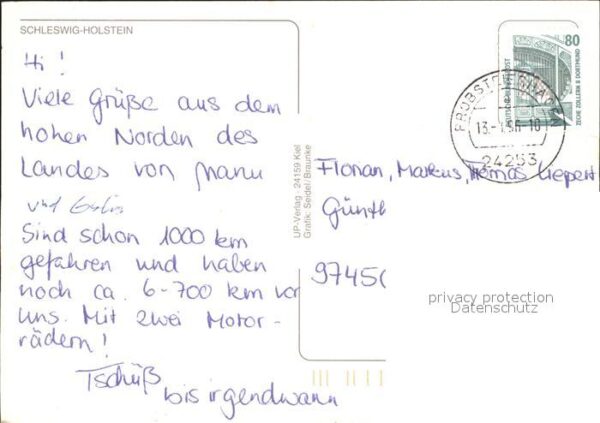 SCHLESWIG-HOLSTEIN
Hi!
Viele Grüße aus dem
hohen Norden des
Landes von Manu
und
Sind schon 1000 km
gefahren und haben
noch ca. 6-700 km vor
uns. Mit zwei Motor-
rädern!
Tschüß
bis irgendwann
UP-Verlag · 24159 Kiel
Grafik: Seidel/Braunke
80
ZECHE ZOLLERN II DORTMUND
13.-1.96-10
24253
Florian, Markus, Thomas Liepert
Günth
9745
privacy protection
Datenschutz